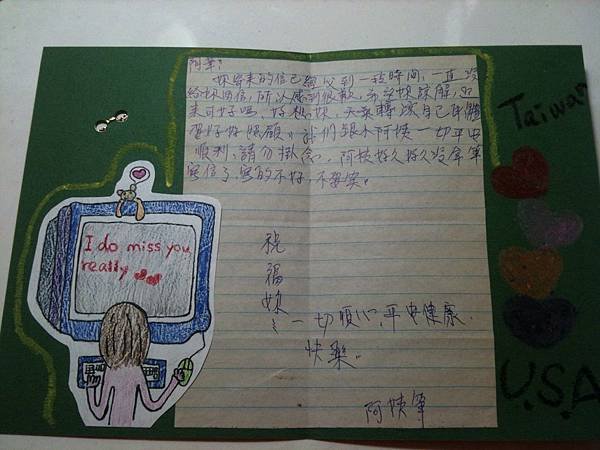 阿華:
妳寄來的信已經收到一段時間,一直沒
給妳回信,所以感到很歉,希望妳諒解,
來可好嗎、好想妳、天氣轉涼自己身體
要好好照顧。我們跟小阿姨一切平安
順利、請勿掛念, 阿姨好久好久沒拿筆
寫信了,寫的不好,不要笑。
祝
福
妳
一切順心,平安健康.
快樂。
阿姨筆
I do miss you
really
Taiwan
U.S.A